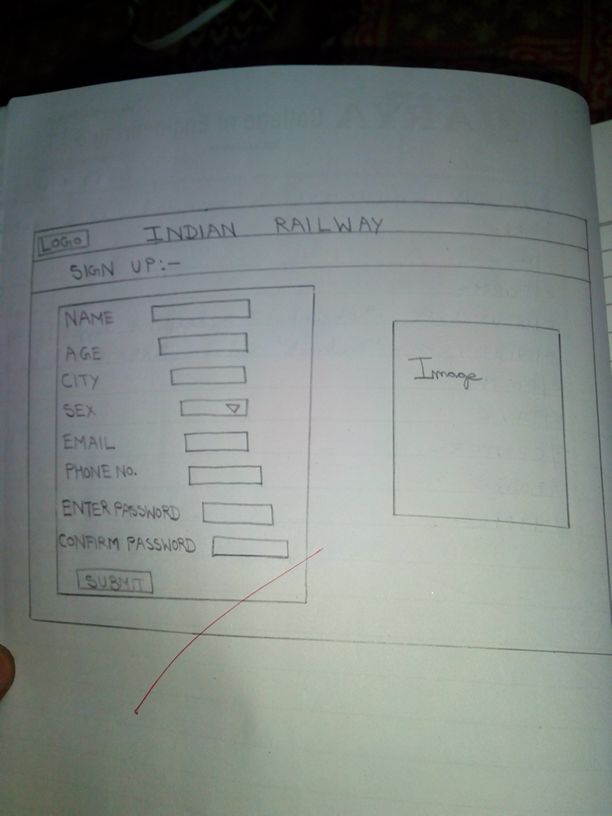 LOGO INDIAN RAILWAY
SIGN UP:-
NAME
AGE
CITY
SEX
EMAIL
PHONE NO.
ENTER PASSWORD
CONFIRM PASSWORD
SUBMIT
Image